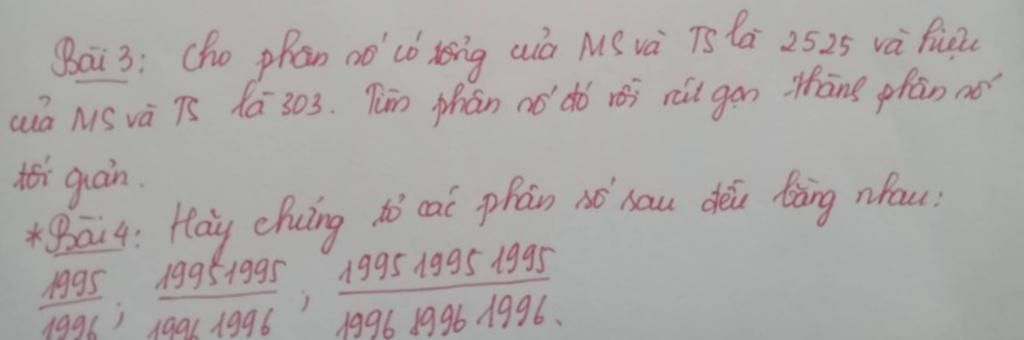 Bài 3: Cho phân số có tổng của MS và TS là 2525 và hiệu
của MS và TS là 303. Tìm phân số đó rồi rút gọn thành phân số
tối giản.
*Bài 4: Hãy chứng tỏ các phân số sau đều bằng nhau:
1995 19951995 1995 1995 1995
1996 ; 1996 1996 ; 1996 1996 1996.